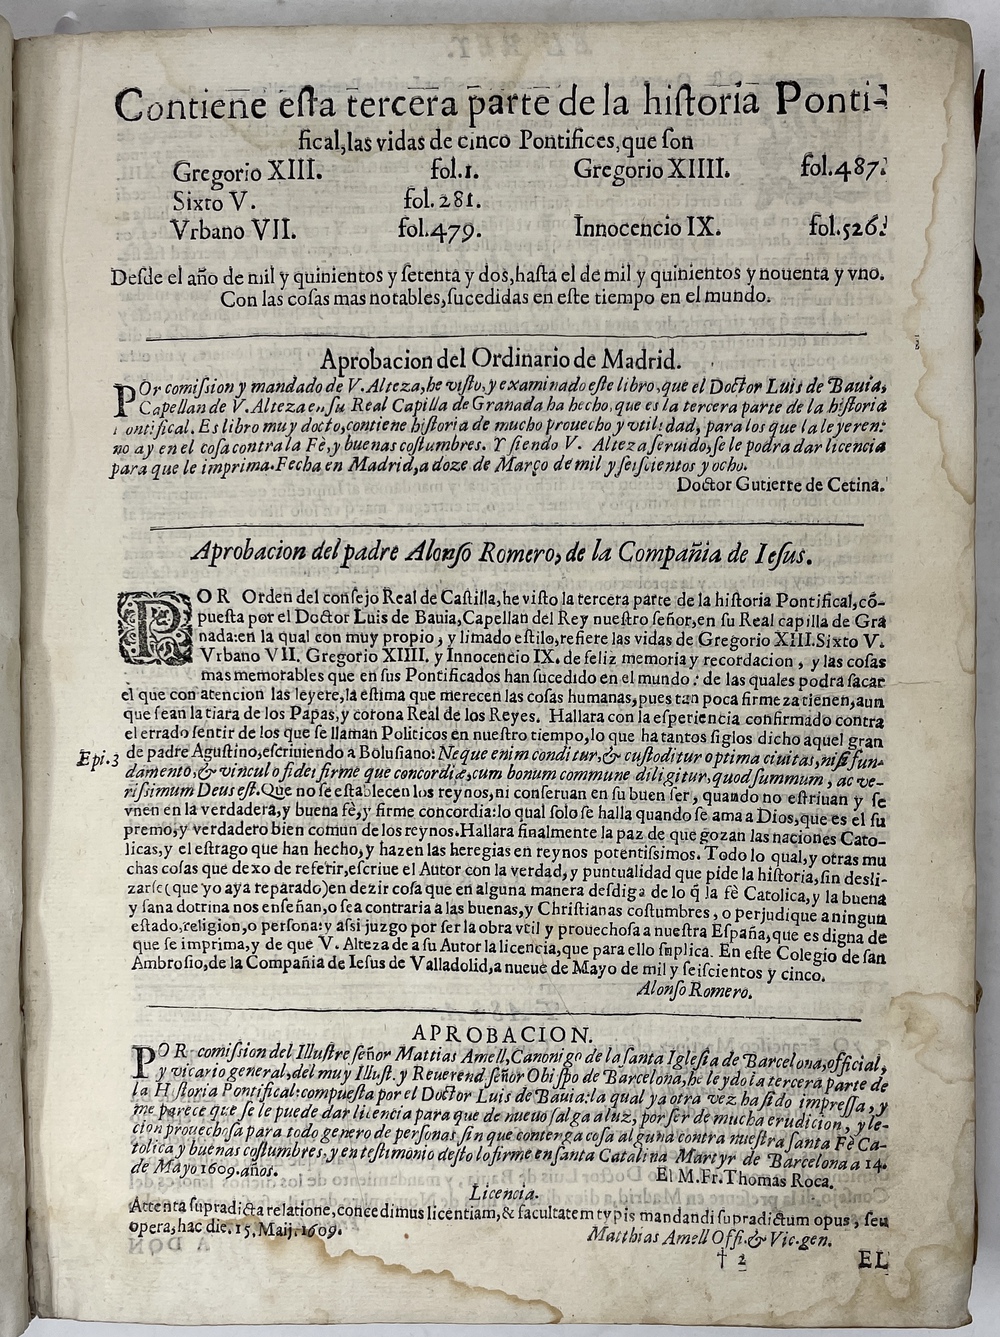 Contiene eſta tercera parte de la hiſtoria Ponti-
fical, las vidas de cinco Pontifices, que ſon
Gregorio XIII. fol.1. Gregorio XIIII. fol.487.
Sixto V. fol. 281.
Vrbano VII. fol.479. Innocencio IX. fol.526.
Deſde el año de mil y quinientos y ſetenta y dos, haſta el de mil y quinientos y nouenta y vno.
Con las coſas mas notables, ſucedidas en eſte tiempo en el mundo.
Aprobacion del Ordinario de Madrid.
POr comiſsion y mandado de V. Alteza, he viſto, y examinado eſte libro, que el Doctor Luis de Bauia,
Capellan de V. Alteza en ſu Real Capilla de Granada ha hecho, que es la tercera parte de la hiſtoria
ontifical. Es libro muy docto, contiene hiſtoria de mucho prouecho y vtilidad, para los que la leyeren:
no ay en el coſa contra la Fè, y buenas coſtumbres. Y ſiendo V. Alteza ſeruido, ſe le podra dar licencia
para que le imprima. Fecha en Madrid, a doze de Março de mil y ſeiſcientos y ocho.
Doctor Gutierre de Cetina.
Aprobacion del padre Alonſo Romero, de la Compañia de Ieſus.
POR Orden del conſejo Real de Caſtilla, he viſto la tercera parte de la hiſtoria Pontifical, cõ-
pueſta por el Doctor Luis de Bauia, Capellan del Rey nueſtro ſeñor, en ſu Real capilla de Gra
nada: en la qual con muy propio, y limado eſtilo, refiere las vidas de Gregorio XIII. Sixto V.
Vrbano VII. Gregorio XIIII. y Innocencio IX. de feliz memoria y recordacion, y las coſas
mas memorables que en ſus Pontificados han sucedido en el mundo: de las quales podra ſacar
el que con atencion las leyere, la eſtima que merecen las coſas humanas, pues tan poca firmeza tienen, aun
que ſean la tiara de los Papas, y corona Real de los Reyes. Hallara con la eſperiencia confirmado contra
el errado ſentir de los que ſe llaman Politicos en nueſtro tiempo, lo que ha tantos ſiglos dicho aquel gran
Epi.3 de padre Aguſtino, eſcriuiendo a Boluſiano: Neque enim conditur, & cuſtoditur optima ciuitas, niſi fun-
damento, & vinculo fidei firme que concordiæ, cum bonum commune diligitur, quod ſummum, ac ve-
riſsimum Deus eſt. Que no ſe eſtablecen los reynos, ni conſeruan en ſu buen ſer, quando no eſtriuan y ſe
vnen en la verdadera, y buena fè, y firme concordia: lo qual ſolo ſe halla quando ſe ama a Dios, que es el ſu
premo, y verdadero bien comun de los reynos. Hallara finalmente la paz de que gozan las naciones Cato-
licas, y el eſtrago que han hecho, y hazen las heregias en reynos potentiſsimos. Todo lo qual, y otras mu
chas coſas que dexo de referir, eſcriue el Autor con la verdad, y puntualidad que pide la hiſtoria, ſin desli-
zarſe (que yo aya reparado) en dezir coſa que en alguna manera deſdiga de lo q̃ la fè Catolica, y la buena
y ſana dotrina nos enſeñan, o ſea contraria a las buenas, y Chriſtianas coſtumbres, o perjudique a ningun
eſtado, religion, o perſona: y aſsi juzgo por ſer la obra vtil y prouechoſa a nueſtra Eſpaña, que es digna de
que ſe imprima, y de que V. Alteza de a ſu Autor la licencia, que para ello ſuplica. En eſte Colegio de ſan
Ambroſio, de la Compañia de Ieſus de Valladolid, a nueue de Mayo de mil y ſeiſcientos y cinco.
Alonſo Romero.
APROBACION.
POR comiſsion del Illuſtre ſeñor Mattias Amell, Canonigo de la ſanta Igleſia de Barcelona, official,
y vicario general, del muy Illuſt. y Reuerend. ſeñor Obiſpo de Barcelona, he leydo la tercera parte de
la Hſtoria Pontifical: compueſta por el Doctor Luis de Bauia: la qual ya otra vez ha ſido impreſſa, y
me parece que ſe le puede dar licencia para que de nueuo ſalga a luz, por ſer de mucha erudicion, y le-
cion prouechoſa para todo genero de perſonas, ſin que contenga coſa alguna contra nueſtra ſanta Fè Ca-
tolica y buenas coſtumbres, y en teſtimonio deſto lo firme en ſanta Catalina Martyr de Barcelona a 14.
de Mayo 1609. años.
El M. Fr. Thomas Roca.
Licencia.
Attenta ſupradicta relatione, concedimus licentiam, & facultatem typis mandandi ſupradictum opus, ſeu
opera, hac die. 15. Maij. 1609.
Matthias Amell Offi. & Vic. gen.
† 2
EL